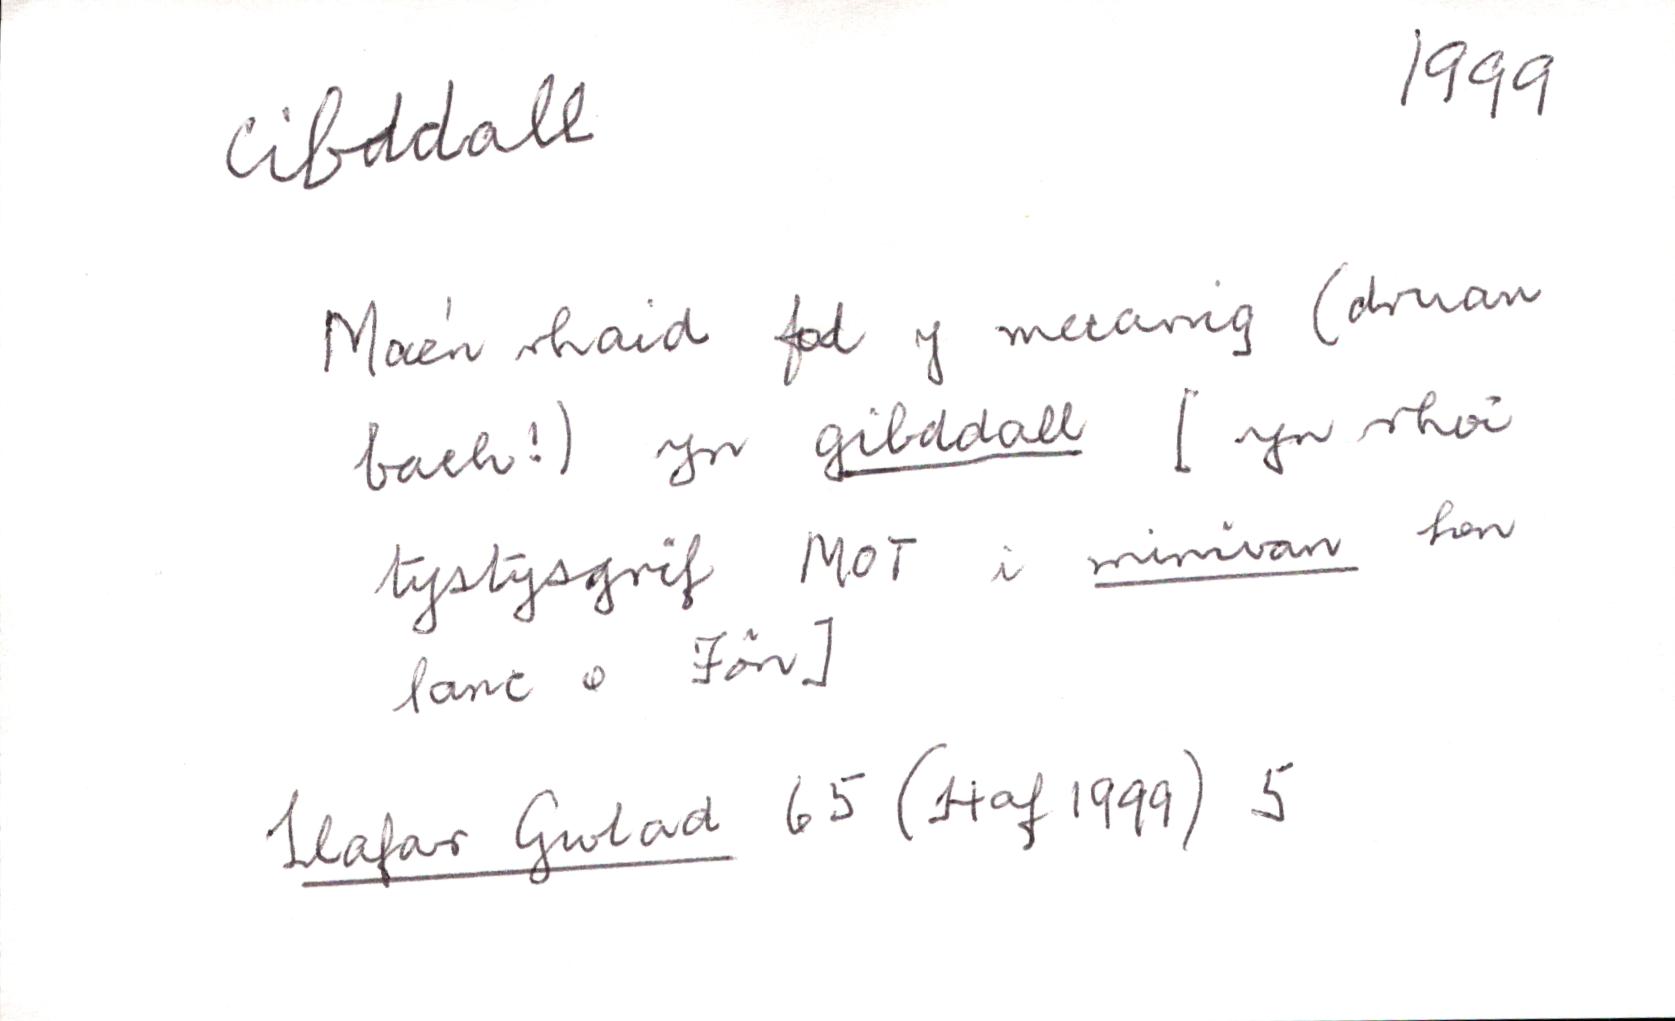 cibddall
1999
Mae'n rhaid fod y mecanig (druan
bach!) yn gibddall [yn rhoi
tystysgrif MOT i minivan hen
lanc o Fôn]
Llafar Gwlad 65 (Haf 1999) 5